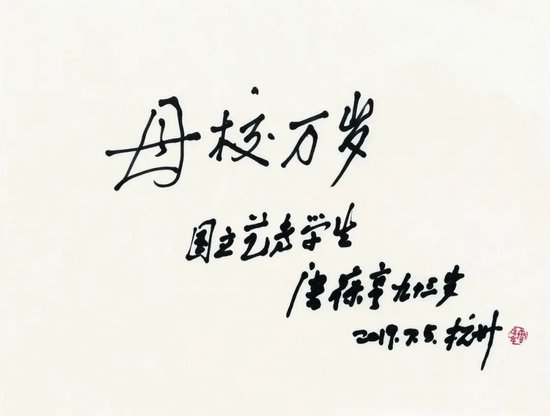 母校万岁
国立艺专学生
唐葆亨九十三岁
2019.7.5. 杭州